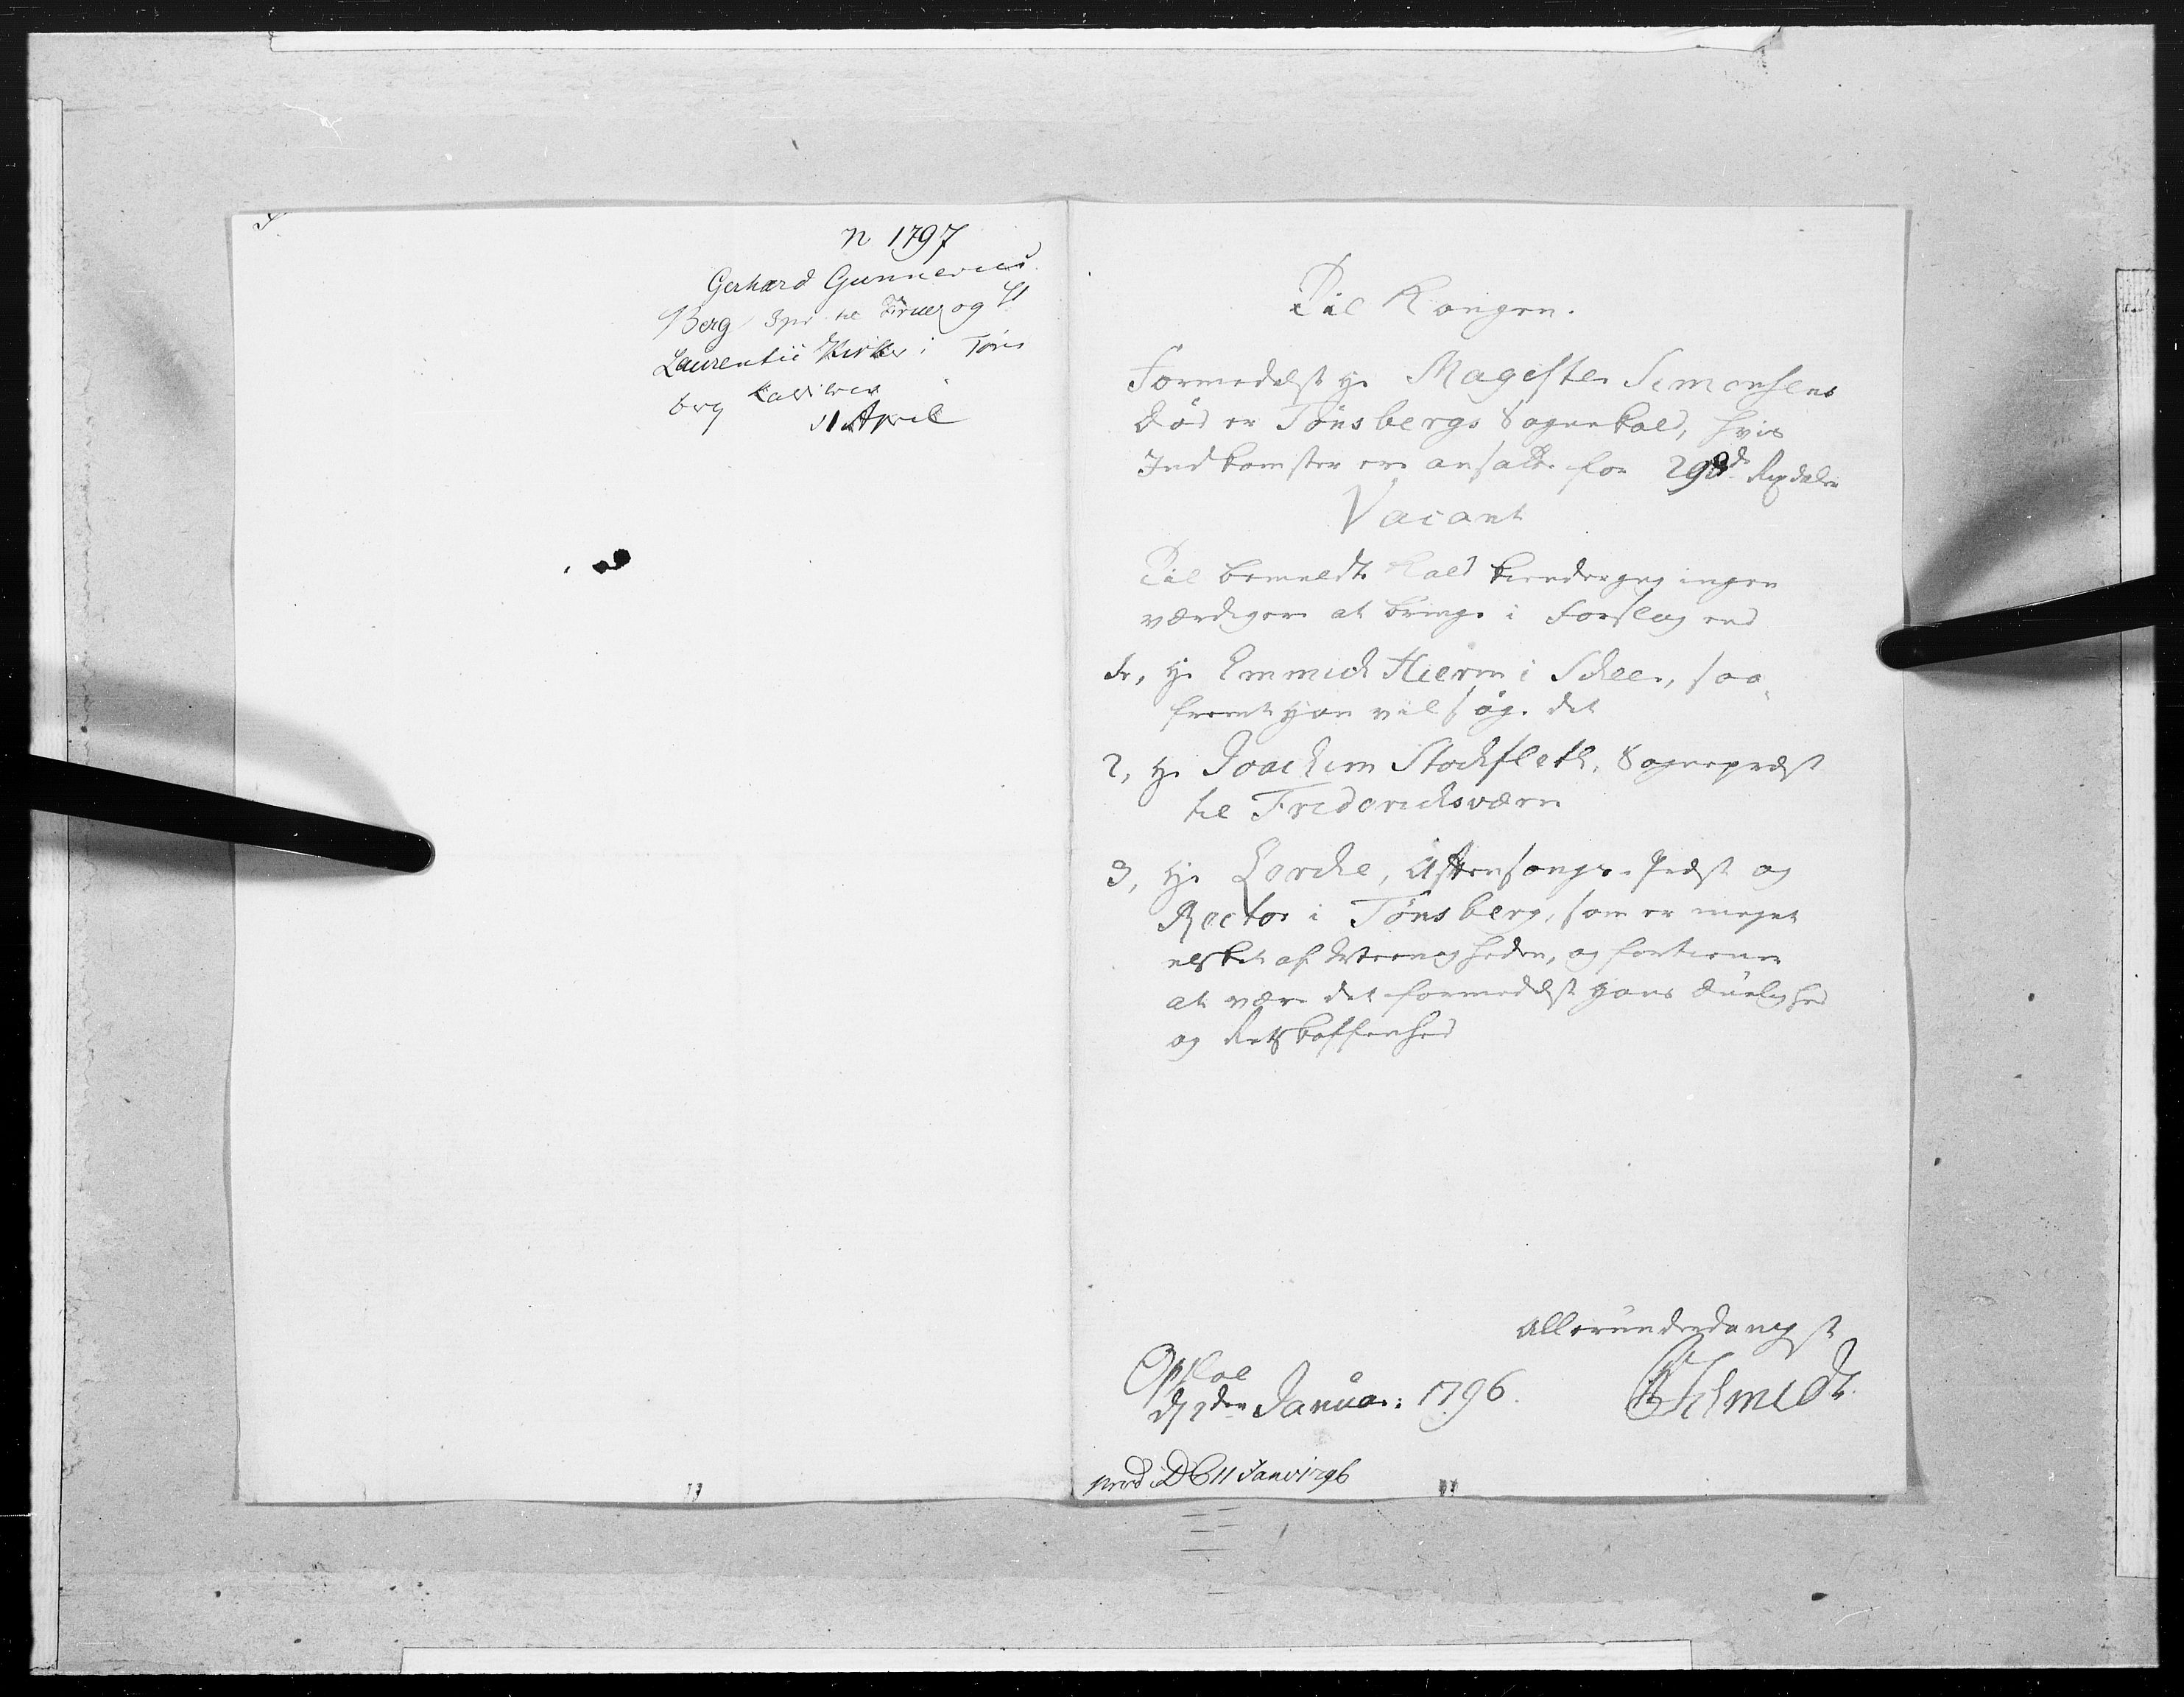 n 1797
Gerhard Gunnerus
Berg Spr til Frue og St
Laurentii Kirker i Töns
berg
11 April
Til Kongen.
Formedelst Hr Magister Simonsens
Död er Tönsbergs Sognekald, hvis
Indkomster ere ansatte for 298 de Rixdaler
Vacant
Til bemeldte Kald kiender jeg ingen
værdigere at bringe i Forslag end
1, Hr Emmich Hierm i Scheen, saa
fremt Han vil söge det
2, Hr Joachim Stockfleth, Sognepræst
til Friderichsværn
3, Hr Lorche, Aftensangs-Præst og
Rector i Tönsberg, som er meget
elsket af Meenigheden, og fortiener
at være det formedelst Hans Duelighed
og Retskaffenhed
Allerunderdanigst
Opsloe
d 2den Januar: 1796.
Schmidt
prod i DC 11 Janv 1796